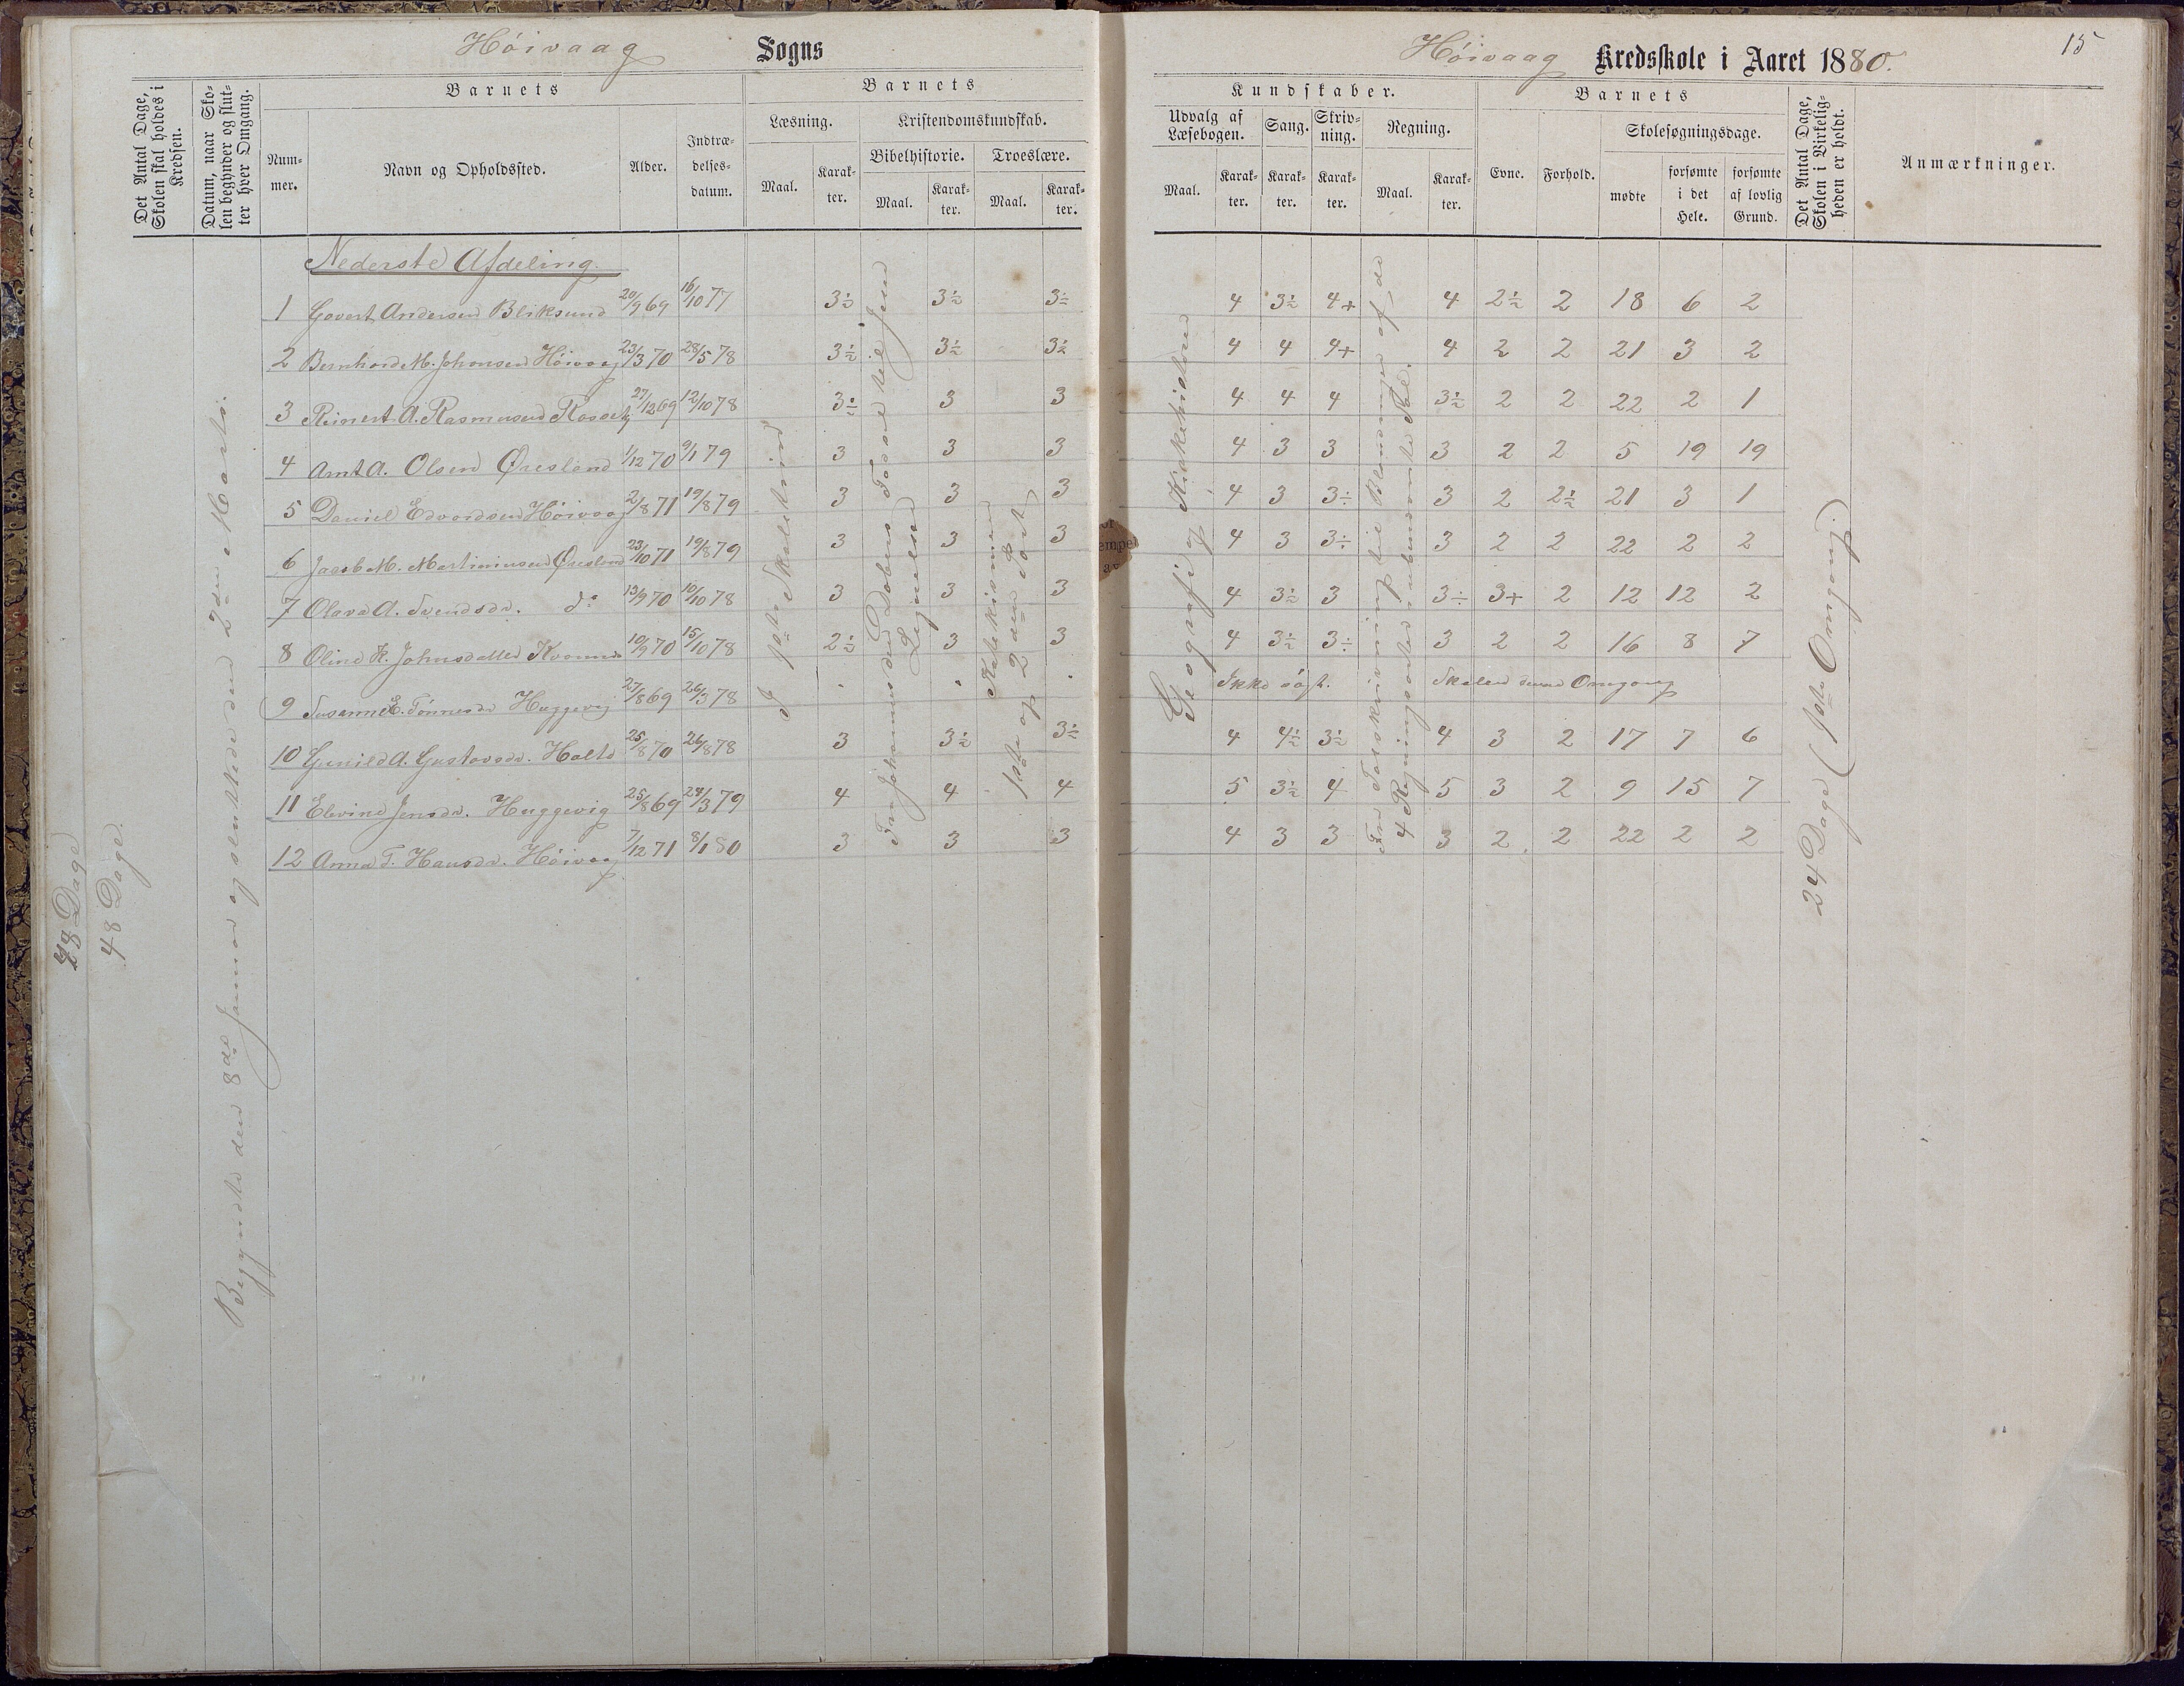 Høivaag Sogns
Høivaag Kredsskole i Aaret 1880.
15
Det Antal Dage, Skolen skal holdes i Kredsen.
Datum, naar Skolen begynder og slutter hver Omgang.
Barnets
Nummer.
Navn og Opholdssted.
Alder.
Indtrædelsesdatum.
Barnets
Læsning.
Maal.
Karakter.
Kristendomskundskab.
Bibelhistorie.
Maal.
Karakter.
Troeslære.
Maal.
Karakter.
Kundskaber.
Udvalg af Læsebogen.
Maal.
Karakter.
Sang.
Karakter.
Skrivning.
Karakter.
Regning.
Maal.
Karakter.
Barnets
Evne.
Forhold.
Skolesøgningsdage.
mødte
forsømte i det Hele.
forsømte af lovlig Grund.
Det Antal Dage, Skolen i Virkeligheden er holdt.
Anmærkninger.
Nederste Afdeling.
1 Govert Andersen Bliksund 20/9 69 16/10 77 3½ 3½ 3½ 4 3½ 4+ 4 2½ 2 18 6 2
2 Bernhard M. Johansen Høivaag 23/3 70 28/5 78 3½ 3½ 3½ 4 4 4+ 4 2 2 21 3 2
3 Reinert A. Rasmusen 27/12 69 12/10 78 3½ 3 3 4 4 4 3½ 2 2 22 2 1
4 Arnt A. Olsen Øresland 1/12 70 9/1 79 3 3 3 4 3 3 3 2 2 5 19 19
5 Daniel Edvardsen Høivaag 2/8 71 19/8 79 3 3 3 4 3 3÷ 3 2 2½ 21 3 1
6 Jacob M. Martiniusen Øresland 23/10 71 19/8 79 3 3 3 4 3 3÷ 3 2 2 22 2 2
7 Olava A. Svendsdr. do 13/9 70 10/10 78 3 3 3 4 3½ 3 3÷ 3+ 2 12 12 2
8 Oline K. Johnsdatter 10/9 70 15/10 78 2½ 3 3 4 3½ 3÷ 3 2 2 16 8 7
9 Susanne E. Tønnesdr Huggevig 27/8 69 26/3 78 Ikke søgt. Skolen denne Omgang
10 Gunild A. Gustavsdr. Holte 25/8 70 26/8 78 3 3½ 3½ 4 4½ 3½ 4 3 2 17 7 6
11 Elevine Jensdr. Huggevig 25/8 69 24/3 79 4 4 4 5 3½ 4 5 3 2 9 15 7
12 Anna T. Hansdr. Høivaag 7/12 71 8/1 80 3 3 3 4 3 3 3 2 2 22 2 2
48 Dage
48 Dage.
Begyndte den 8de Januar og sluttede den 2den Marts.
I 1ste Skoletrin
Fra Johannes den Døbers til Jesu Lignelser
Katekismen 1ste og 2den Part
Geografi og Kirkehistorie
4 Regningsarter i ubenævnte Tal.
24 Dage (1ste Omgang.)